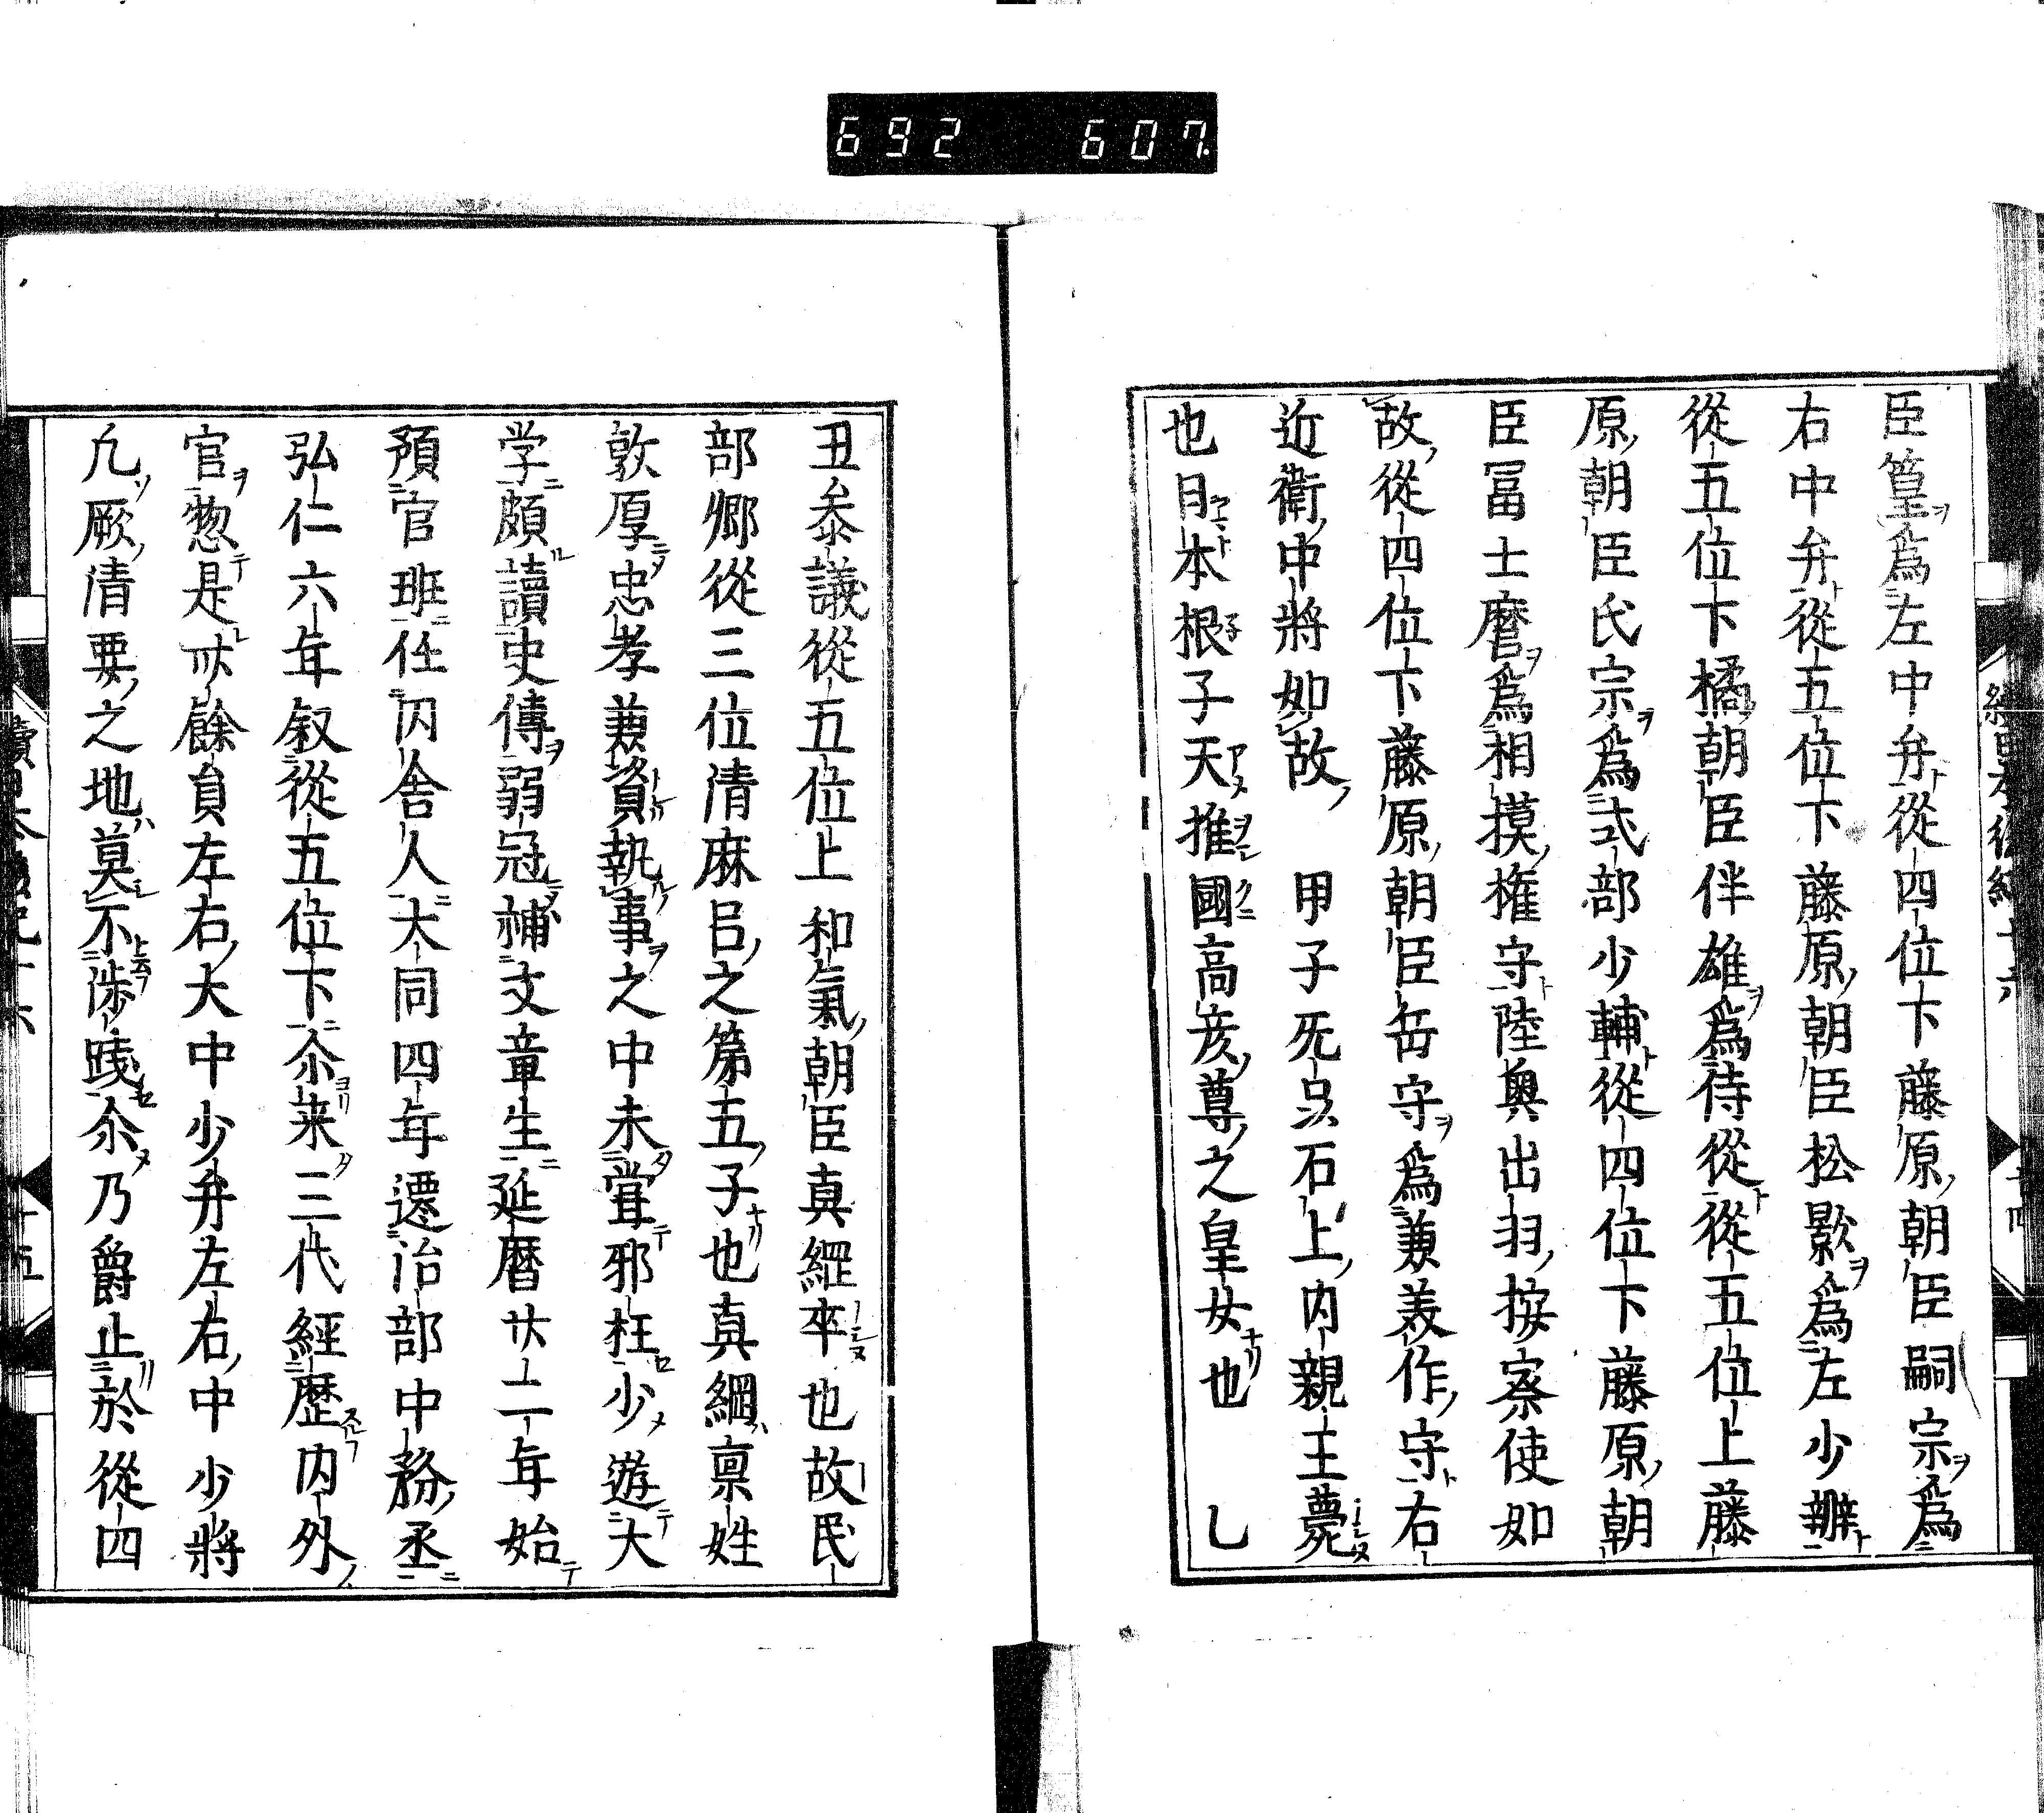 692 607
臣篁爲左中弁從四位下藤原朝臣嗣宗爲
右中弁從五位下藤原朝臣松影爲左少辨
從五位下橘朝臣伴雄爲侍從從五位上藤
原朝臣氏宗爲式部少輔從四位下藤原朝
臣冨士麿爲相摸權守陸奧出羽按察使如
故從四位下藤原朝臣岳守爲兼美作守右
近衛中將如故 甲子无品石上内親王薨
也日本根子天推國高彦尊之皇女也 乙
丑叅議從五位上和氣朝臣真綱卒也故民
部卿從三位清麻呂之第五子也真綱禀姓
敦厚忠孝兼資執事之中未甞邪枉少遊大
学頗讀史傳弱冠補文章生延暦廿二年始
預官班任内舎人大同四年遷治部中務丞
弘仁六年叙從五位下尒来三代經歴内外
官惣是卌餘負左右大中少弁左右中少將
凢厥清要之地莫不渉踐尒乃爵止於從四